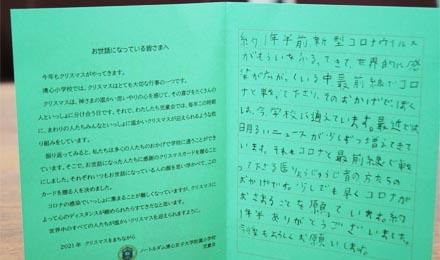 お世話になっている皆さまへ
今年もクリスマスがやってきます。
博心小学校では、クリスマスはとても大切な行事の一つです。
クリスマスは、神さまの温かい思いやりの心を感じて、その喜びをたくさんの
人といっしょに分け合う日です。それで、わたしたち児童会では、毎年この時期
に、まわりの人たちみんなといっしょに温かいクリスマスが迎えられるような取
り組みをしています。
振り返ってみると、私たちは多くの人たちのおかげで学校に通うことができて
います。そこで、お世話になった人たちに感謝のクリスマスカードを贈ることに
しました。それぞれいつもお世話になっている人の顔を思い浮かべて、この
カードを贈る人を決めました。
コロナの感染でいっしょに集まることが難しくなっていますが、クリスマスに
よって心のディスタンスが縮められたらすてきだなと思います。
世界中のすべての人たちが温かいクリスマスを迎えられますように。
2021年 クリスマスをまちながら
ノートルダム清心女子大学附属小学校
児童会
約1年半前新型コロナウイルス
がもういをふるってきて、世界的に感
染が広がっている中最前線でコロ
ナと戦って下さり、そのおかげでぼく
は今、学校に通えています。最近では
明るいニュースが少しずつ増えてきて
います。それもコロナと最前線で戦
って下さる医りょうじゅうじ者の方たちの
おかげです。少しでも早くコロナが
おさまることを願っています。約
1年半ありがとうございました。
今後もよろしくお願いします。